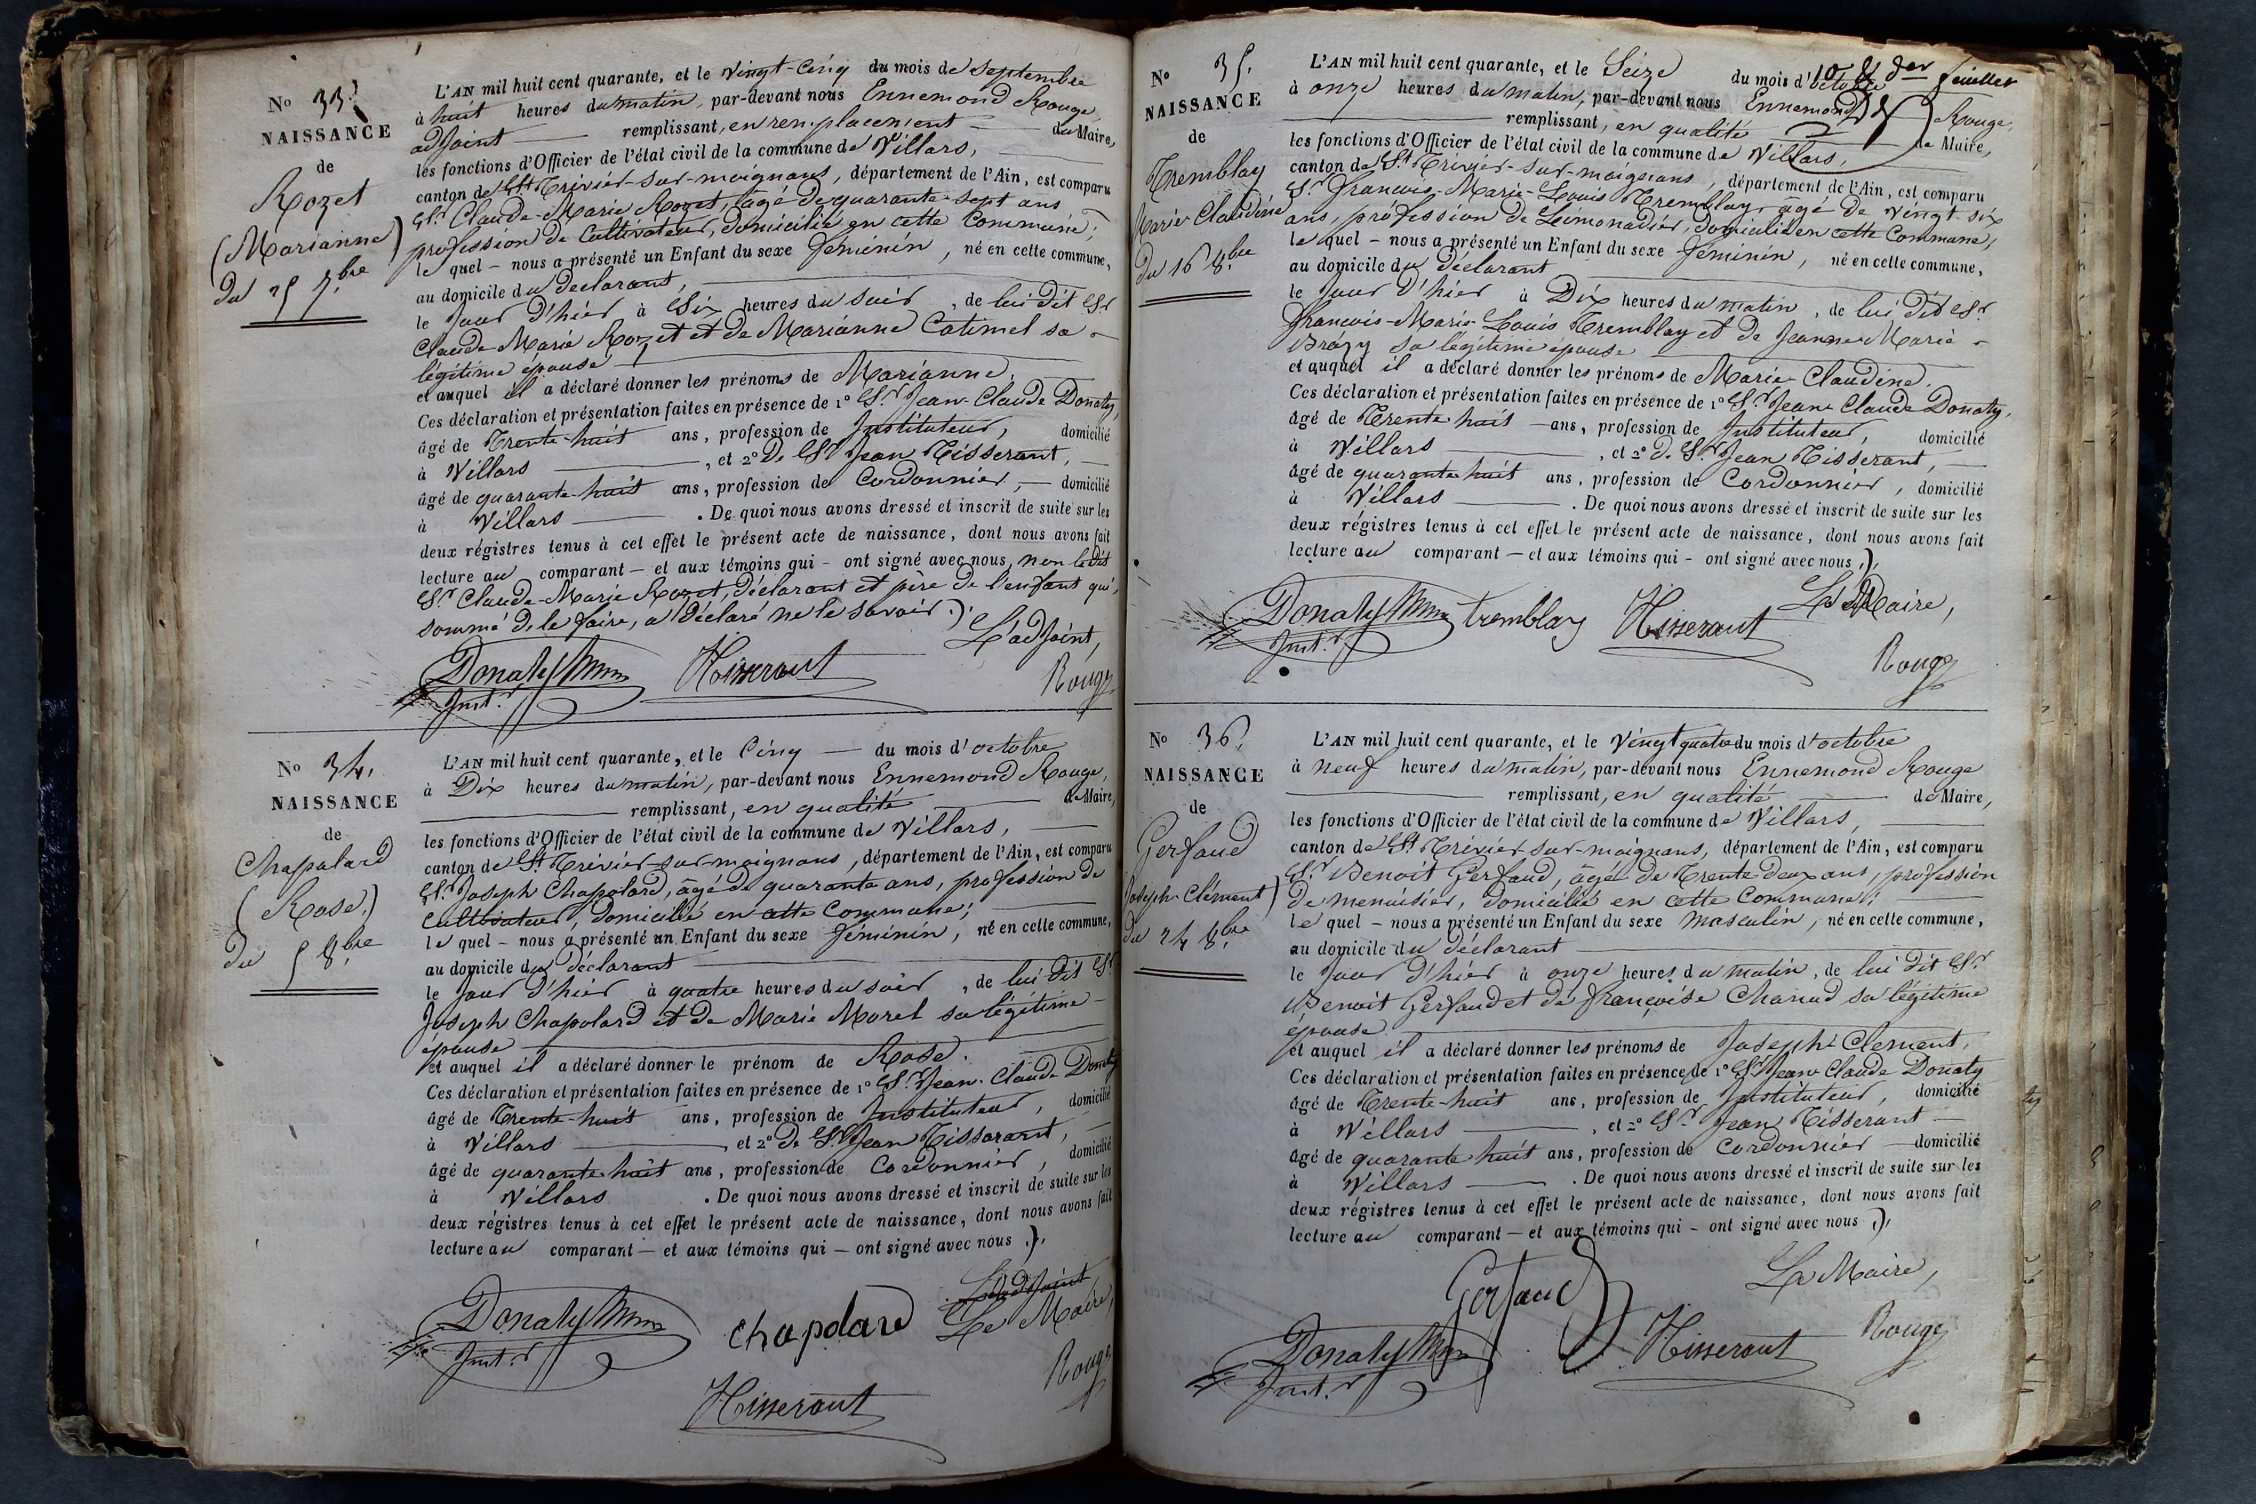 No 33.
NAISSANCE
de
Rozet
(Marianne)
du 25 7.bre
L'AN mil huit cent quarante, et le vingt-cinq du mois de Septembre
à huit heures du matin, par-devant nous Ennemond Rouge,
adjoint remplissant, en remplacement du Maire,
les fonctions d'Officier de l'état civil de la commune de Villars,
canton de St Trivier-sur-moignans, département de l'Ain, est comparu
Sr. Claude-Marie Rozet, âgé de quarante-sept ans
profession de Cultivateur, domicilié en cette Commune;
le quel – nous a présenté un Enfant du sexe féminin, né en cette commune,
au domicile du déclarant,
le jour d'hier à Six heures du soir, de lui dit Sr
Claude-Marie Rozet et de Marianne Catimel sa
légitime épouse
et auquel il a déclaré donner les prénoms de Marianne.
Ces déclaration et présentation faites en présence de 1º Sr Jean-Claude Donaty,
âgé de Trente-huit ans, profession de Instituteur, domicilié
à Villars, et 2º De Sr Jean Tisserant,
âgé de quarante-huit ans, profession de Cordonnier, domicilié
à Villars. De quoi nous avons dressé et inscrit de suite sur les
deux régistres tenus à cet effet le présent acte de naissance, dont nous avons fait
lecture au comparant – et aux témoins qui – ont signé avec nous, non ledit
Sr Claude-Marie Rozet, déclarant et père de l'enfant qui,
sommé de le faire, a déclaré ne le savoir.
L'adjoint,
Donaty
Inst.r
Tisserant
Rouge
No 34.
NAISSANCE
de
Chapolard
(Rose.)
du 5 8.bre
L'AN mil huit cent quarante, et le Cinq du mois d'octobre
à Dix heures du matin, par-devant nous Ennemond Rouge,
remplissant, en qualité de Maire,
les fonctions d'Officier de l'état civil de la commune de Villars,
canton de St Trivier-sur-moignans, département de l'Ain, est comparu
Sr. Joseph Chapolard, âgé de quarante ans, profession de
Cultivateur, domicilié en cette Commune;
le quel – nous a présenté un Enfant du sexe féminin, né en cette commune,
au domicile du déclarant
le jour d'hier à quatre heures du soir, de lui dit Sr
Joseph Chapolard et de Marie Morel sa légitime
épouse
et auquel il a déclaré donner le prénom de Rose.
Ces déclaration et présentation faites en présence de 1º Sr Jean-Claude Donaty
âgé de Trente-huit ans, profession de Instituteur, domicilié
à Villars et 2º De Sr Jean Tisserant,
âgé de quarante-huit ans, profession de Cordonnier, domicilié
à Villars. De quoi nous avons dressé et inscrit de suite sur les
deux régistres tenus à cet effet le présent acte de naissance, dont nous avons fait
lecture au comparant – et aux témoins qui – ont signé avec nous.
L'adjoint
Le Maire,
Donaty
Inst.r
chapolard
Rouge
Tisserant
No 35.
NAISSANCE
de
Tremblay
Marie-Claudine
du 16 8.bre
10 & der feuillet
L'AN mil huit cent quarante, et le Seize du mois d'octobre
à onze heures du matin, par-devant nous Ennemond Rouge,
remplissant, en qualité de Maire,
les fonctions d'Officier de l'état civil de la commune de Villars,
canton de St Trivier-sur-moignans, département de l'Ain, est comparu
Sr. françois-Marie-Louis Tremblay, âgé de vingt-six
ans, profession de Limonadier, domicilié en cette Commune;
le quel – nous a présenté un Enfant du sexe féminin, né en cette commune,
au domicile du déclarant
le jour d'hier à Dix heures du matin, de lui dit Sr
françois-Marie-Louis Tremblay et de Jeanne-Marie
Brazy sa légitime épouse
et auquel il a déclaré donner les prénoms de Marie-Claudine.
Ces déclaration et présentation faites en présence de 1º Sr Jean-Claude Donaty,
âgé de Trente-huit ans, profession de Instituteur, domicilié
à Villars, et 2º De Sr Jean Tisserant,
âgé de quarante-huit ans, profession de Cordonnier, domicilié
à Villars. De quoi nous avons dressé et inscrit de suite sur les
deux régistres tenus à cet effet le présent acte de naissance, dont nous avons fait
lecture au comparant – et aux témoins qui – ont signé avec nous.
Le Maire,
Donaty
Inst.r
tremblay
Tisserant
Rouge
No 36.
NAISSANCE
de
Gerfaud
Joseph-Clément)
du 24 8.bre
L'AN mil huit cent quarante, et le vingt quatre du mois d'octobre
à neuf heures du matin, par-devant nous Ennemond Rouge
remplissant, en qualité de Maire,
les fonctions d'Officier de l'état civil de la commune de Villars,
canton de St Trivier-sur-moignans, département de l'Ain, est comparu
Sr. Benoit Gerfaud, âgé de Trente-deux ans, profession
de menuisier, domicilié en cette Commune;
le quel – nous a présenté un Enfant du sexe masculin, né en cette commune,
au domicile du déclarant
le jour d'hier à onze heures du matin, de lui dit Sr
Benoit Gerfaud et de françoise Chanud sa légitime
épouse
et auquel il a déclaré donner les prénoms de Joseph-Clément,
Ces déclaration et présentation faites en présence de 1º Sr Jean-Claude Donaty
âgé de Trente-huit ans, profession de Instituteur, domicilié
à Villars, et 2º Sr Jean Tisserant
âgé de quarante-huit ans, profession de Cordonnier domicilié
à Villars. De quoi nous avons dressé et inscrit de suite sur les
deux régistres tenus à cet effet le présent acte de naissance, dont nous avons fait
lecture au comparant – et aux témoins qui – ont signé avec nous.
Le Maire,
Gerfaud
Donaty
Inst.r
Tisserant
Rouge